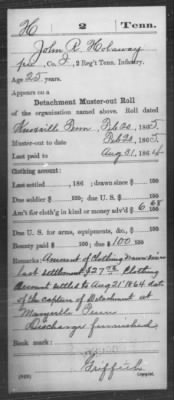 H 2 Tenn.
John R. Holaway
Co. , 2 Reg't Tenn. Infantry.
Age 25 years.
Appears on a
Detachment Muster-out Roll
of the organization named above. Roll dated
Knoxville Tenn, Feb 20, 1865.
Muster-out to date Feb 20, 1865.
Last paid to Aug 31, 1864.
Clothing account:
Last settled , 186 ; drawn since $ 100
Due soldier $ 100; due U. S. $ 100
Am't for cloth'g in kind or money adv'd $ 6 68/100
Due U. S. for arms, equipments, &c., $ 100
Bounty paid $ 100; due $ 100 100
Remarks: Amount of Clothing drawn since
last settlement $27 Clothing
account settled to Aug 31 1864 date
of the capture of Detachment at
Maryville Tenn
Discharge furnished
Book mark:
Griffith
Copyist.